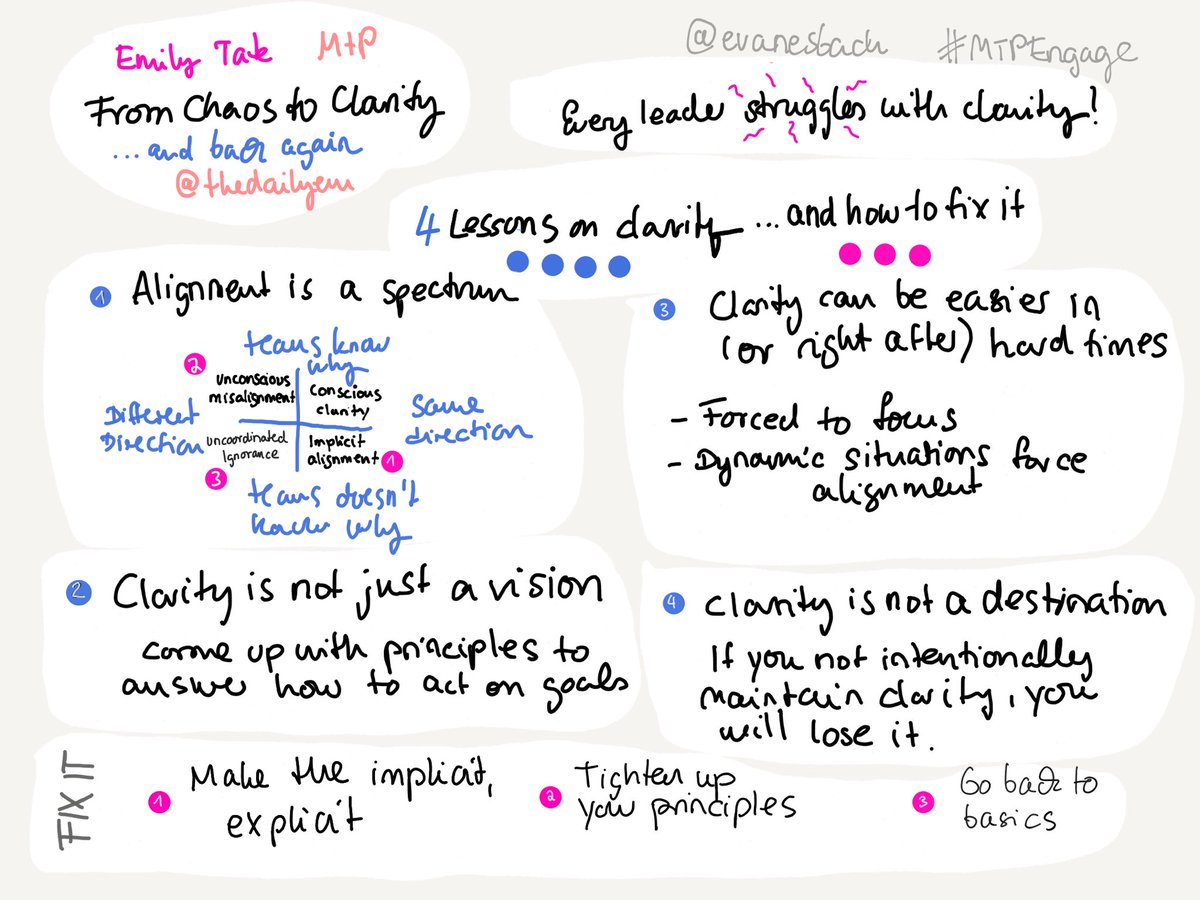 Emily Tate MTP
From Chaos to Clarity
...and back again
@thedailyem
@evanesbach #MTPEngage
Every leader struggles with clarity!
4 Lessons on clarity ...and how to fix it
1 Alignment is a spectrum
teams know
why
2
Unconscious
misalignment
Conscious
clarity
Different
Direction
Same
direction
Uncoordinated
Ignorance
Implicit
alignment 1
3
teams doesn't
know why
2 Clarity is not just a vision
come up with principles to
answer how to act on goals
3 Clarity can be easier in
(or right after) hard times
- Forced to focus
- Dynamic situations force
alignment
4 Clarity is not a destination
If you not intentionally
maintain clarity, you
will lose it.
FIX IT
1 Make the implicit,
explicit
2 Tighten up
your principles
3 Go back to
basics